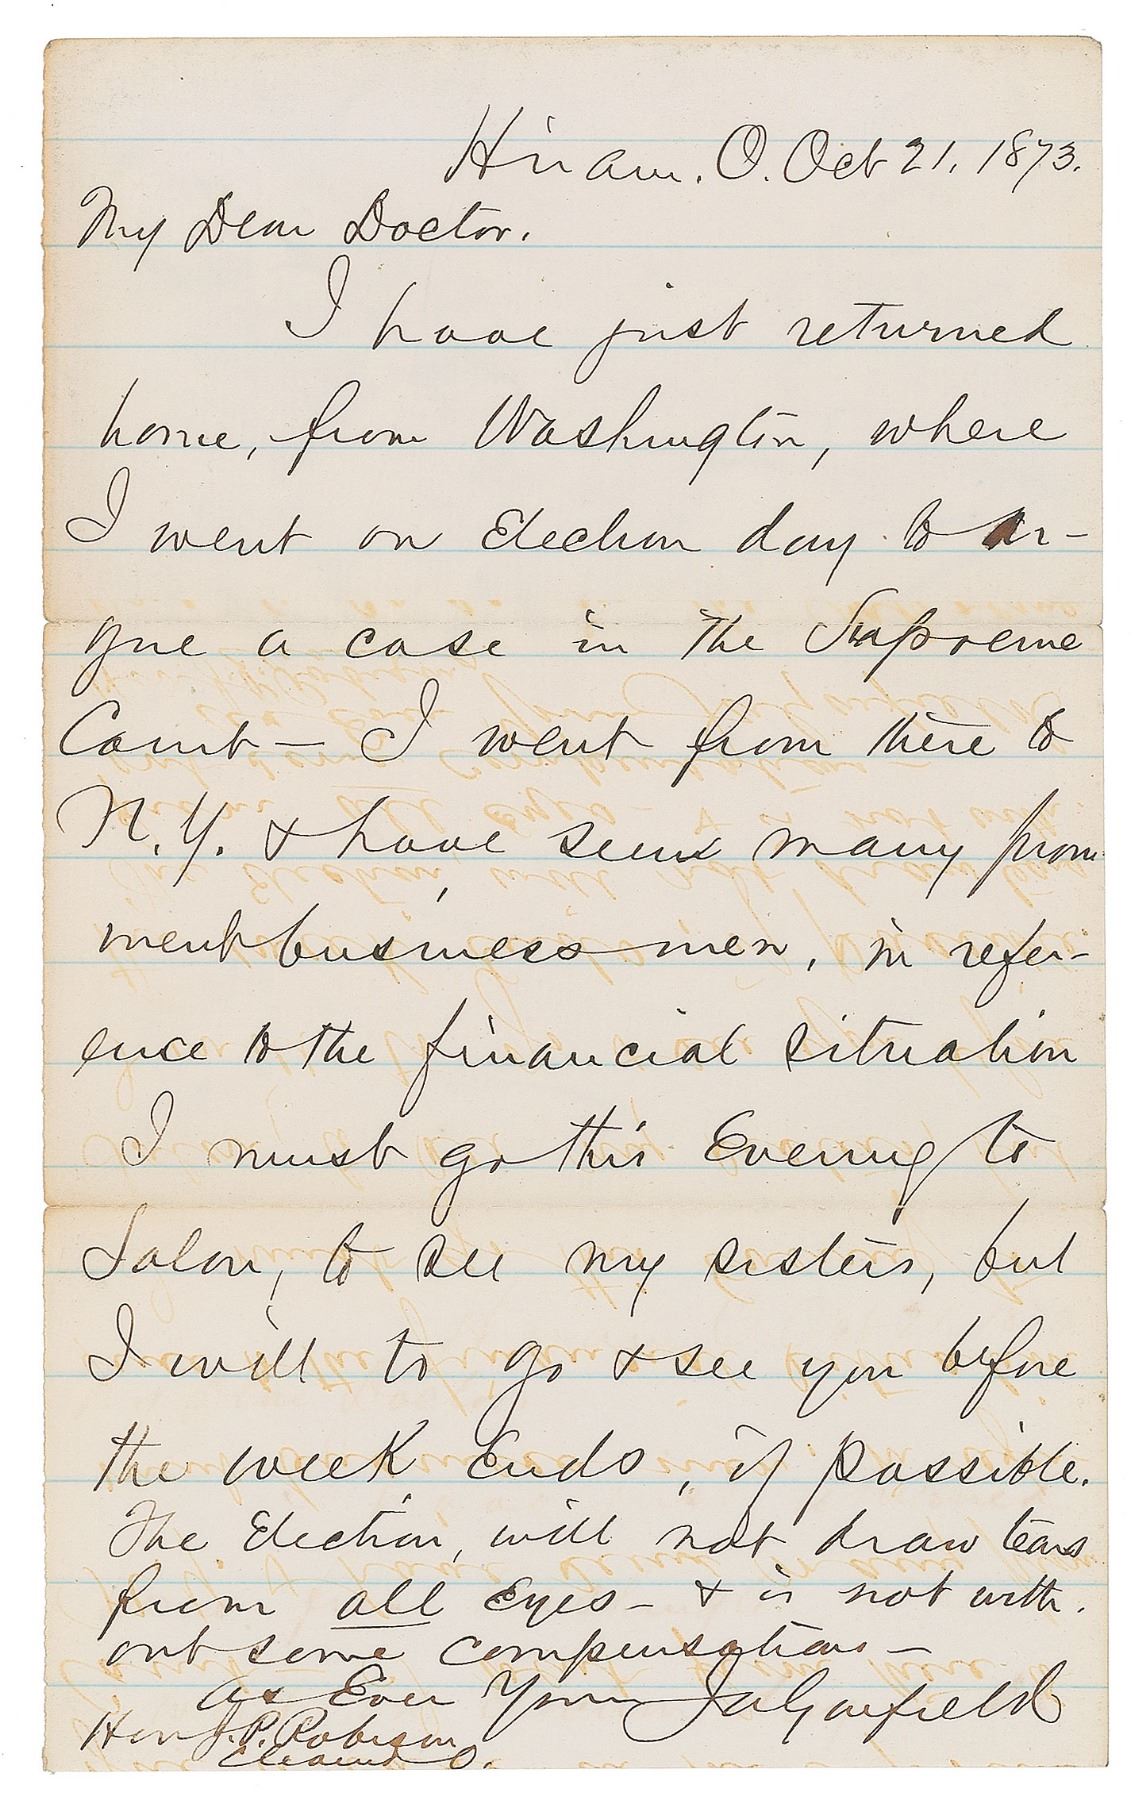 Hiram. O. Oct 21. 1873.
My Dear Doctor.
I have just returned
home, from Washington, where
I went on Election day to ar-
gue a case in the Supreme
Court — I went from there to
N.Y. & have seen many prom
inent business men, in refer-
ence to the financial situation
I must go this Evening to
Solon, to see my sisters, but
I will to go & see you before
the week Ends, if possible.
The Election, will not draw tears
from all Eyes — & is not with.
out some compensations —
As Ever Yours JAGarfield
Hon J.P. Robison
Cleavend O.